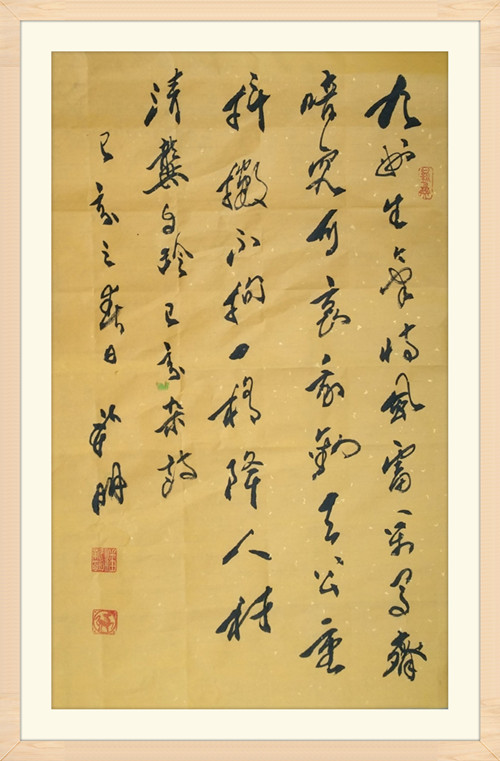 九州生气恃风雷万马齐
喑究可哀我劝天公重
抖擞不拘一格降人材
清龚自珍己亥杂诗
己亥之春日